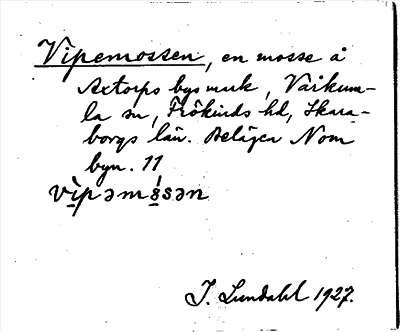 Vipemossen, en mosse å
Axtorps bys mark, Vårkum-
la sn, Frökinds hd, Skara-
borgs län. Belägen Nom
byn. 11
vìpəmósən
I. Lundahl 1927.